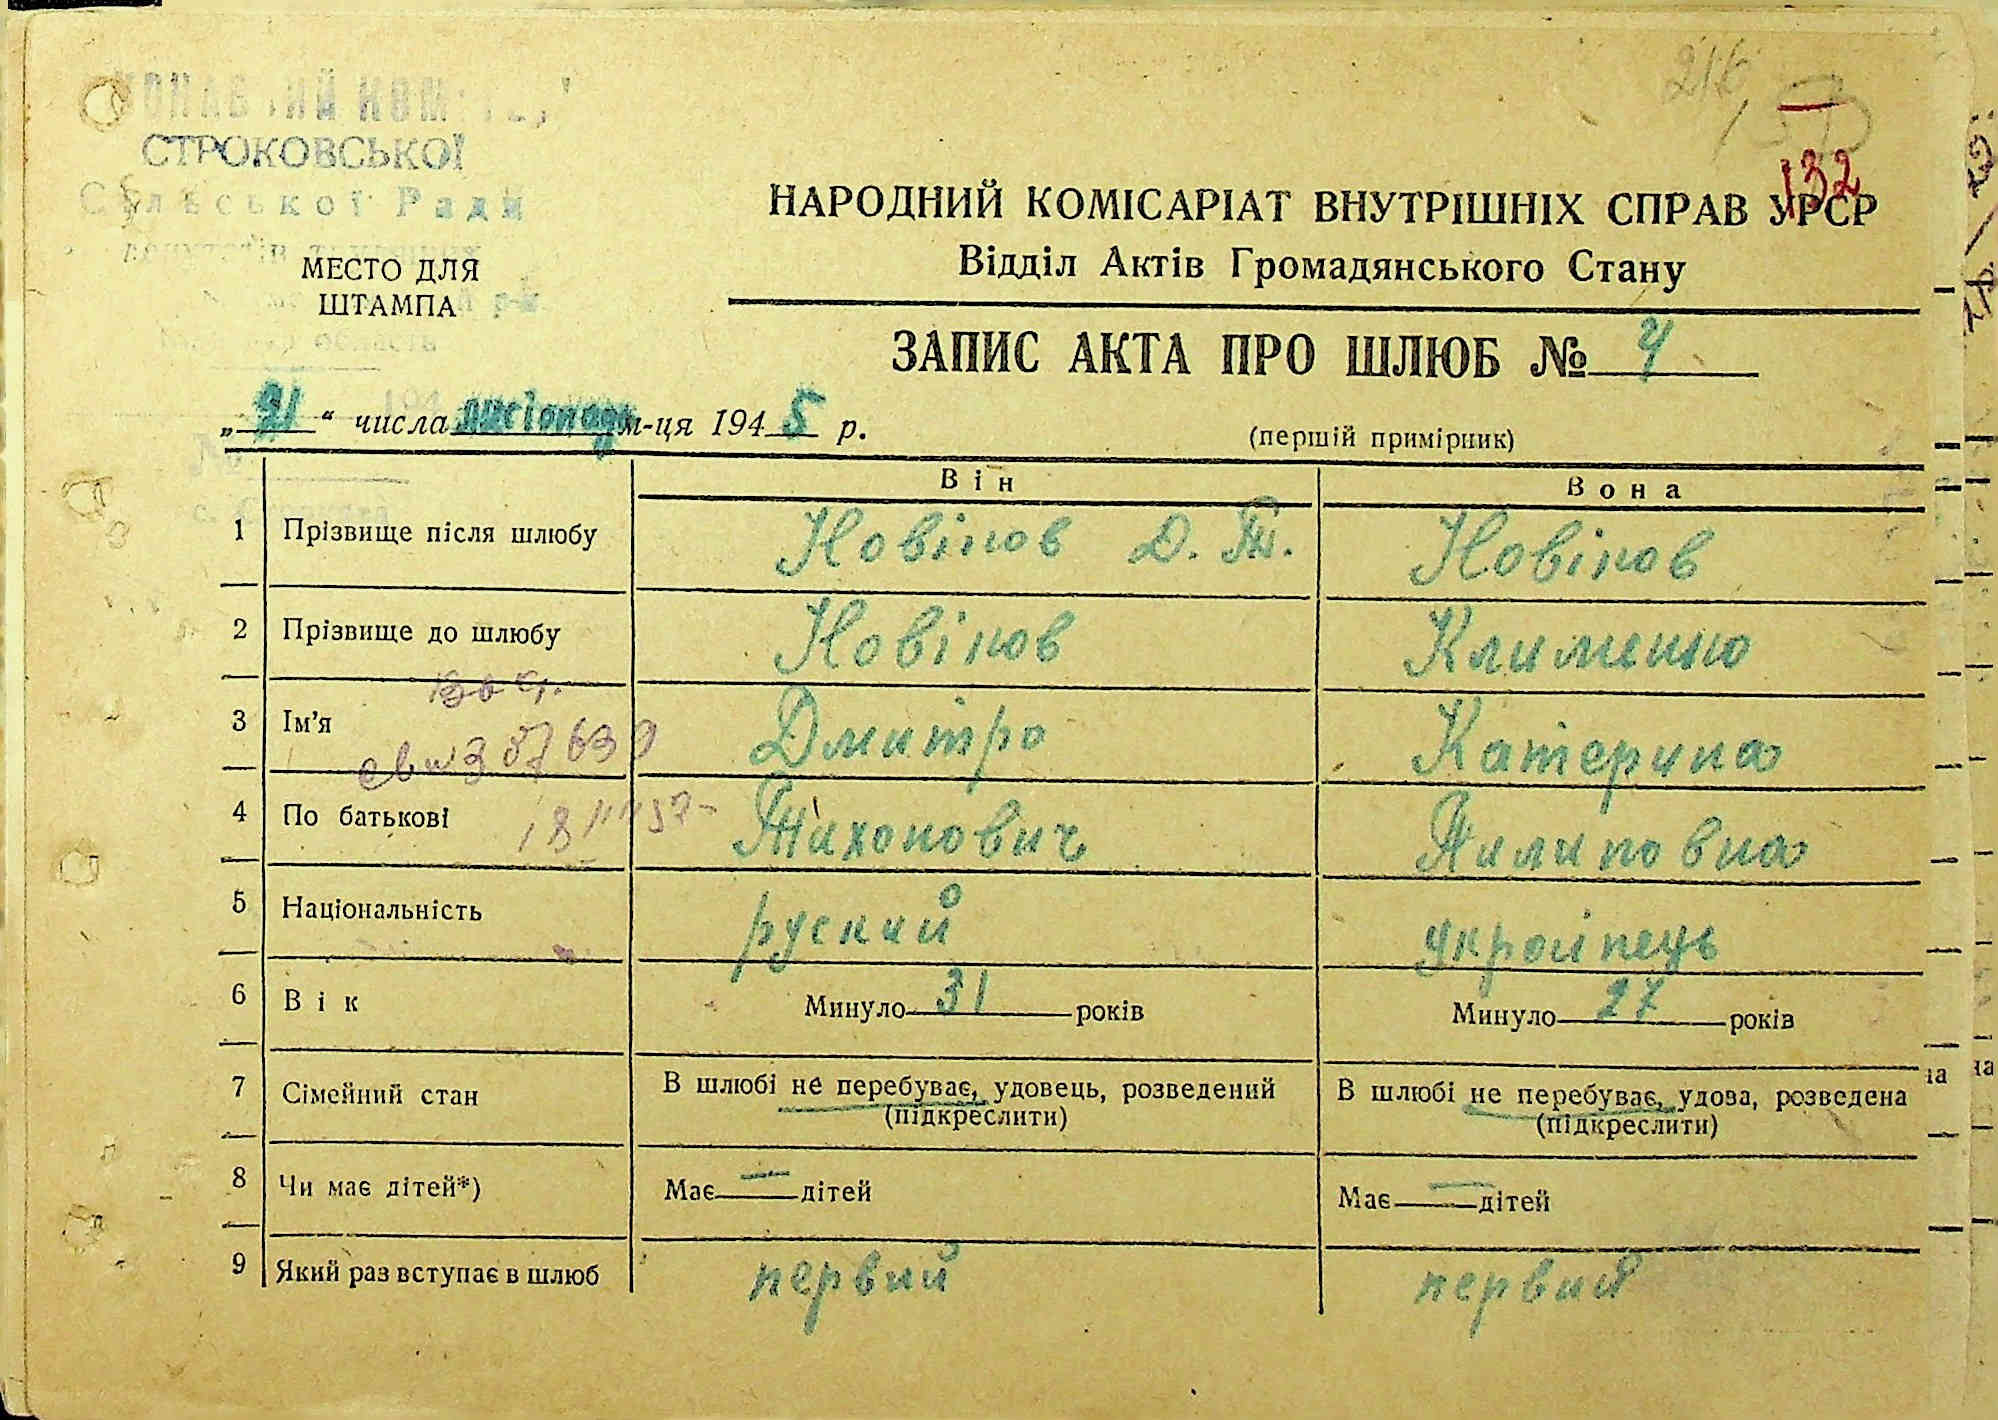 СТРОКОВСЬКОЇ
Сільської Ради
МЕСТО ДЛЯ
ШТАМПА
132
НАРОДНИЙ КОМІСАРІАТ ВНУТРІШНІХ СПРАВ УРСР
Відділ Актів Громадянського Стану
ЗАПИС АКТА ПРО ШЛЮБ № 4
„21“ числа листопада м-ця 1945 р.
(першій примірник)
Він Вона
1 Прізвище після шлюбу Новіков Д. Т. Новіков
2 Прізвище до шлюбу Новіков Клименко
3 Ім'я Дмитро Катерина
4 По батькові Тихонович Пилиповна
5 Національність руский украйнець
6 Вік Минуло 31 років Минуло 27 років
7 Сімейний стан В шлюбі не перебуває, удовець, розведений В шлюбі не перебуває, удова, розведена
(підкреслити) (підкреслити)
8 Чи має дітей*) Має — дітей Має — дітей
9 Який раз вступає в шлюб первий первий